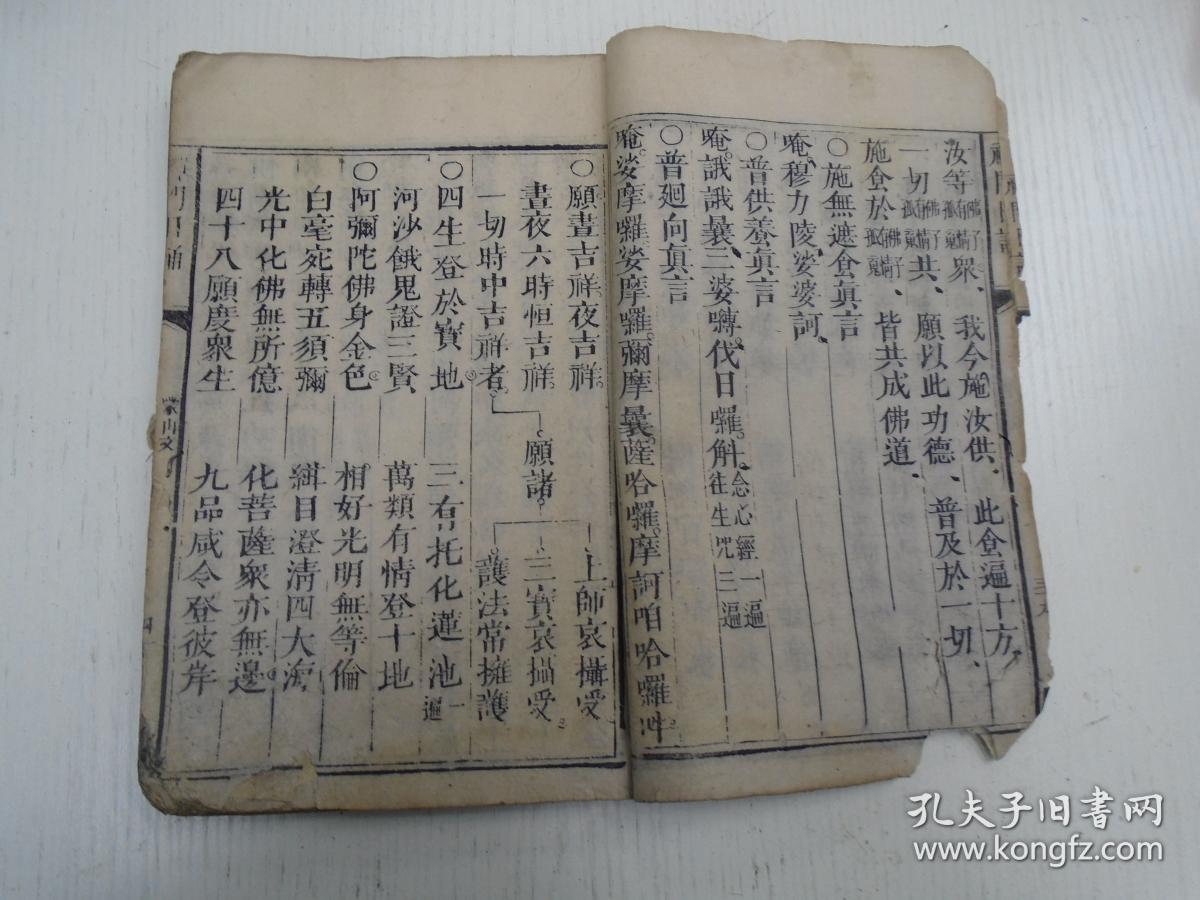 汝等佛子有情孤魂衆、我今施汝供、此食遍十方、
一切佛子有情孤魂共、願以此功德、普及於一切、
施食於佛子有情孤魂、皆共成佛道、
○施無遮食眞言
唵、穆力陵、娑婆訶、
○普供養眞言
唵。誐誐曩、三婆嚩、伐日囉。斛。念心經一遍往生咒三遍
○普廻向眞言
唵。娑摩囉。娑摩囉。彌摩曩。薩哈囉。摩訶咱哈囉吽。
○願晝吉祥夜吉祥。
晝夜六時恒吉祥。
一切時中吉祥者。
願諸。
上師哀攝受
三寶哀攝受。
護法常擁護
○四生登於寳地。三有托化蓮池一遍
河沙餓鬼證三賢 萬類有情登十地
○阿彌陀佛身金色 相好光明無等倫
白毫宛轉五須彌 紺目澄清四大海
光中化佛無所億 化菩薩衆亦無邊
四十八願度衆生 九品咸令登彼岸
蒙山文
四
孔夫子旧书网
www.kongfz.com